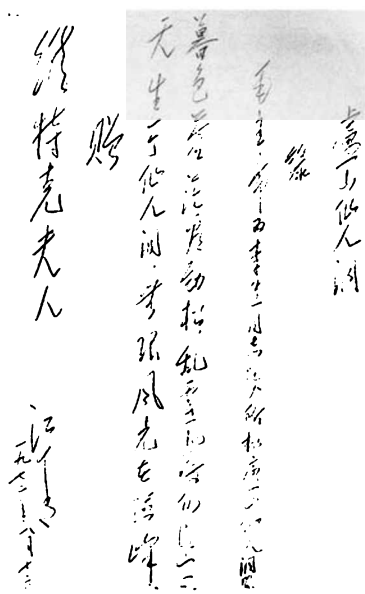 庐山仙人洞
录
毛主席为李进同志题所摄庐山仙人洞照
暮色苍茫看劲松 乱云飞渡仍从容
天生一个仙人洞 无限风光在险峰
赠
维特克夫人
江青
一九七二年八月十二